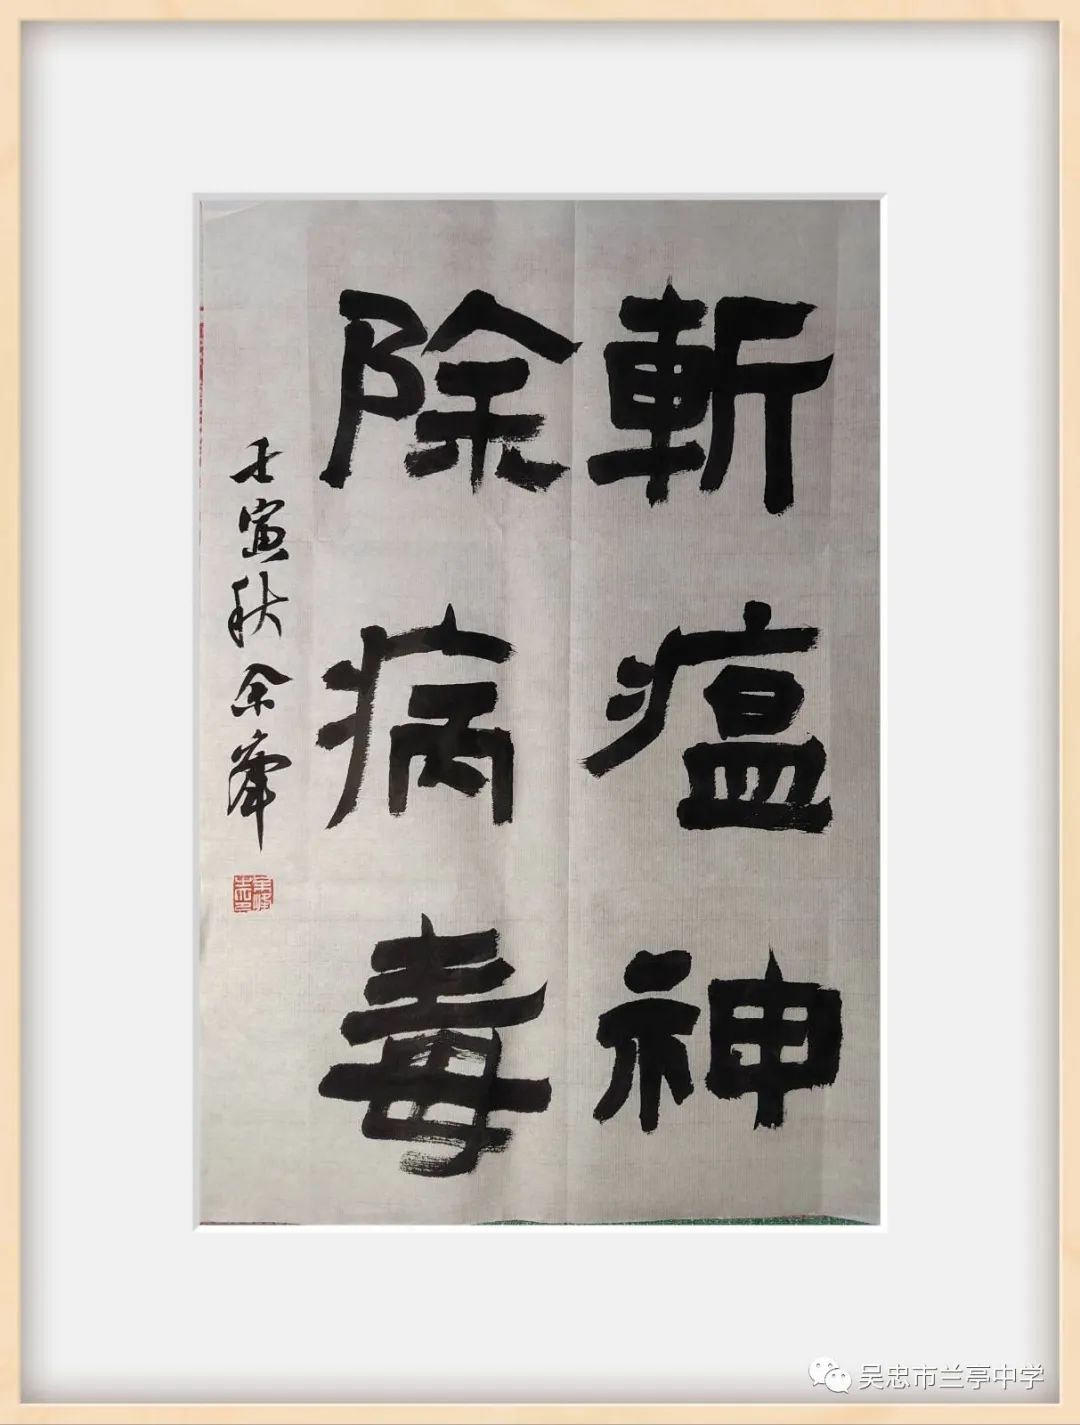 斬瘟神
除病毒
壬寅秋余峯
吴忠市兰亭中学